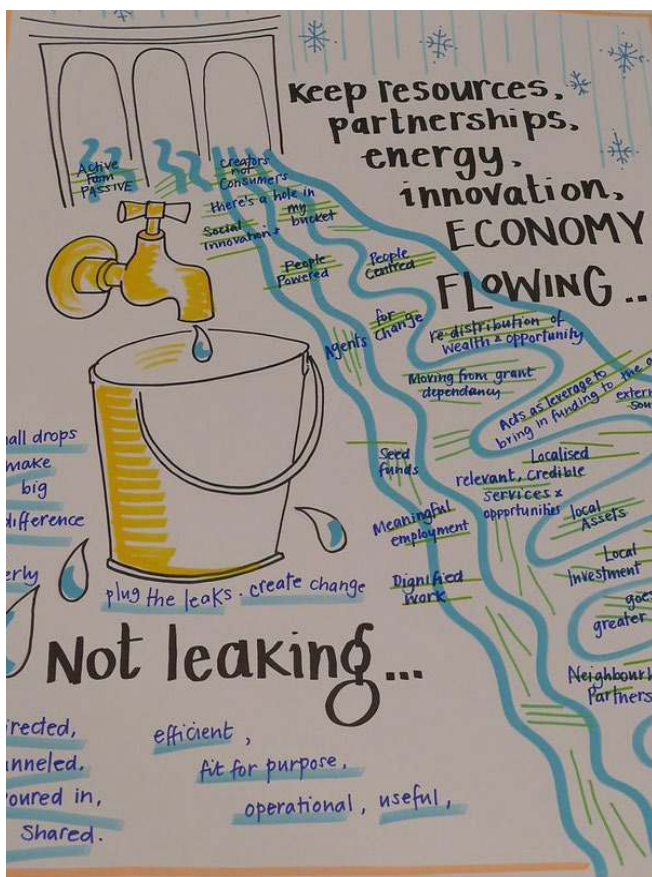 Keep resources,
partnerships,
energy,
innovation,
ECONOMY
FLOWING...
Active
from
PASSIVE
Creators
not
Consumers
there's a hole in
my
bucket
Social
Innovation +
People
Powered
People
Centred
Agents for
change
re-distribution of
wealth & opportunity
Moving from grant
dependancy
Acts as leverage to
bring in funding to the
extern
Seed
funds
Localised
relevant, credible
services &
opportunities
local
Assets
Meaningful
employment
Local
Investment
Dignified
work
goes
greater
Neighbourh
Partners
all drops
make
big
difference
erly
plug the leaks. create change
Not leaking...
irected,
anneled,
oured in,
Shared.
efficient,
fit for purpose,
operational, useful,